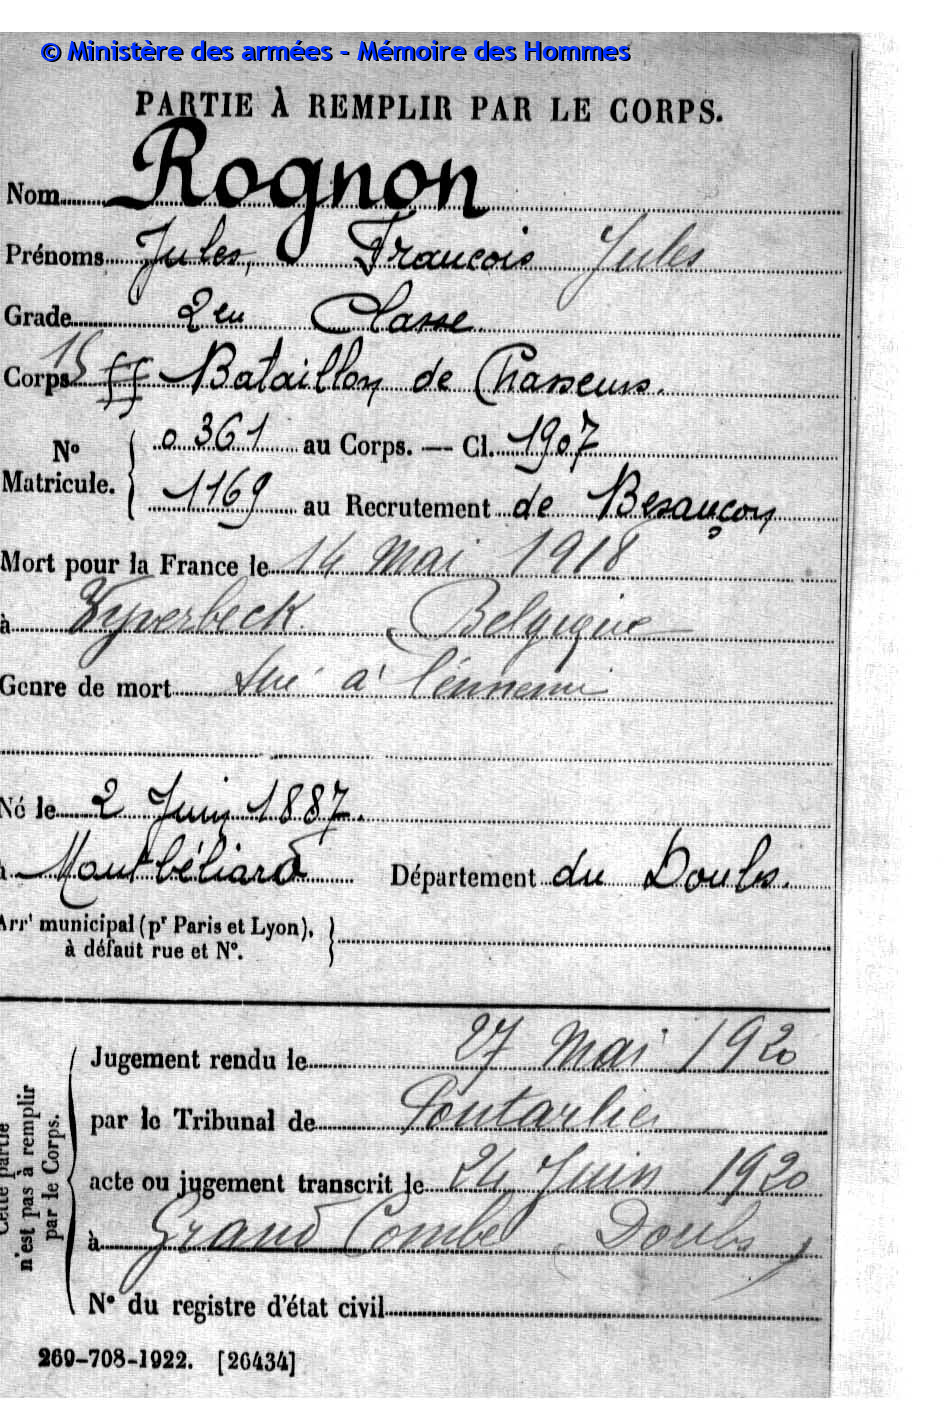 © Ministère des armées - Mémoire des Hommes
PARTIE À REMPLIR PAR LE CORPS.
Nom Rognon
Prénoms Jules, François Jules
Grade 2eu Classe
Corps 15 Bataillon de Chasseurs.
No Matricule. { 0361 au Corps. — Cl. 1907
1169 au Recrutement de Besançon
Mort pour la France le 14 Mai 1918
à Belgique
Genre de mort tué à l'ennemi
Né le 2 Juin 1887.
à Montbéliard Département du Doubs.
Arrt municipal (pr Paris et Lyon),
à défaut rue et N°. }
Cette partie n'est pas à remplir par le Corps.
Jugement rendu le 27 Mai 1920
par le Tribunal de Pontarlier
acte ou jugement transcrit le 24 Juin 1920
à Grand Combe (Doubs)
N° du registre d'état civil
269-708-1922. [26434]